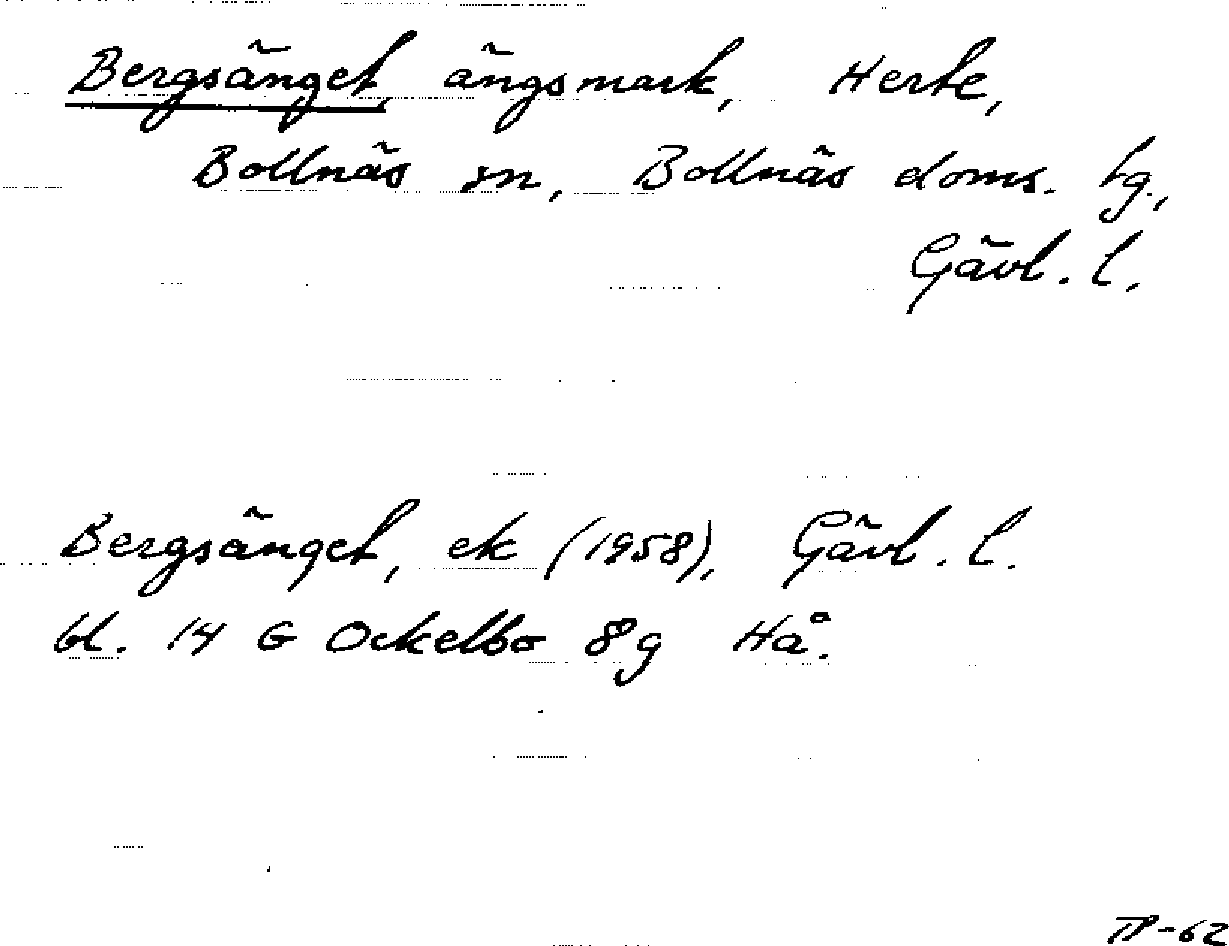 Bergsänget, ängsmark, Herte,
Bollnäs sn, Bollnäs doms. tg.,
Gävl. l.
Bergsänget, ek (1958), Gävl. l.
bl. 14 G Ockelbo 8g Hå.
TP-62